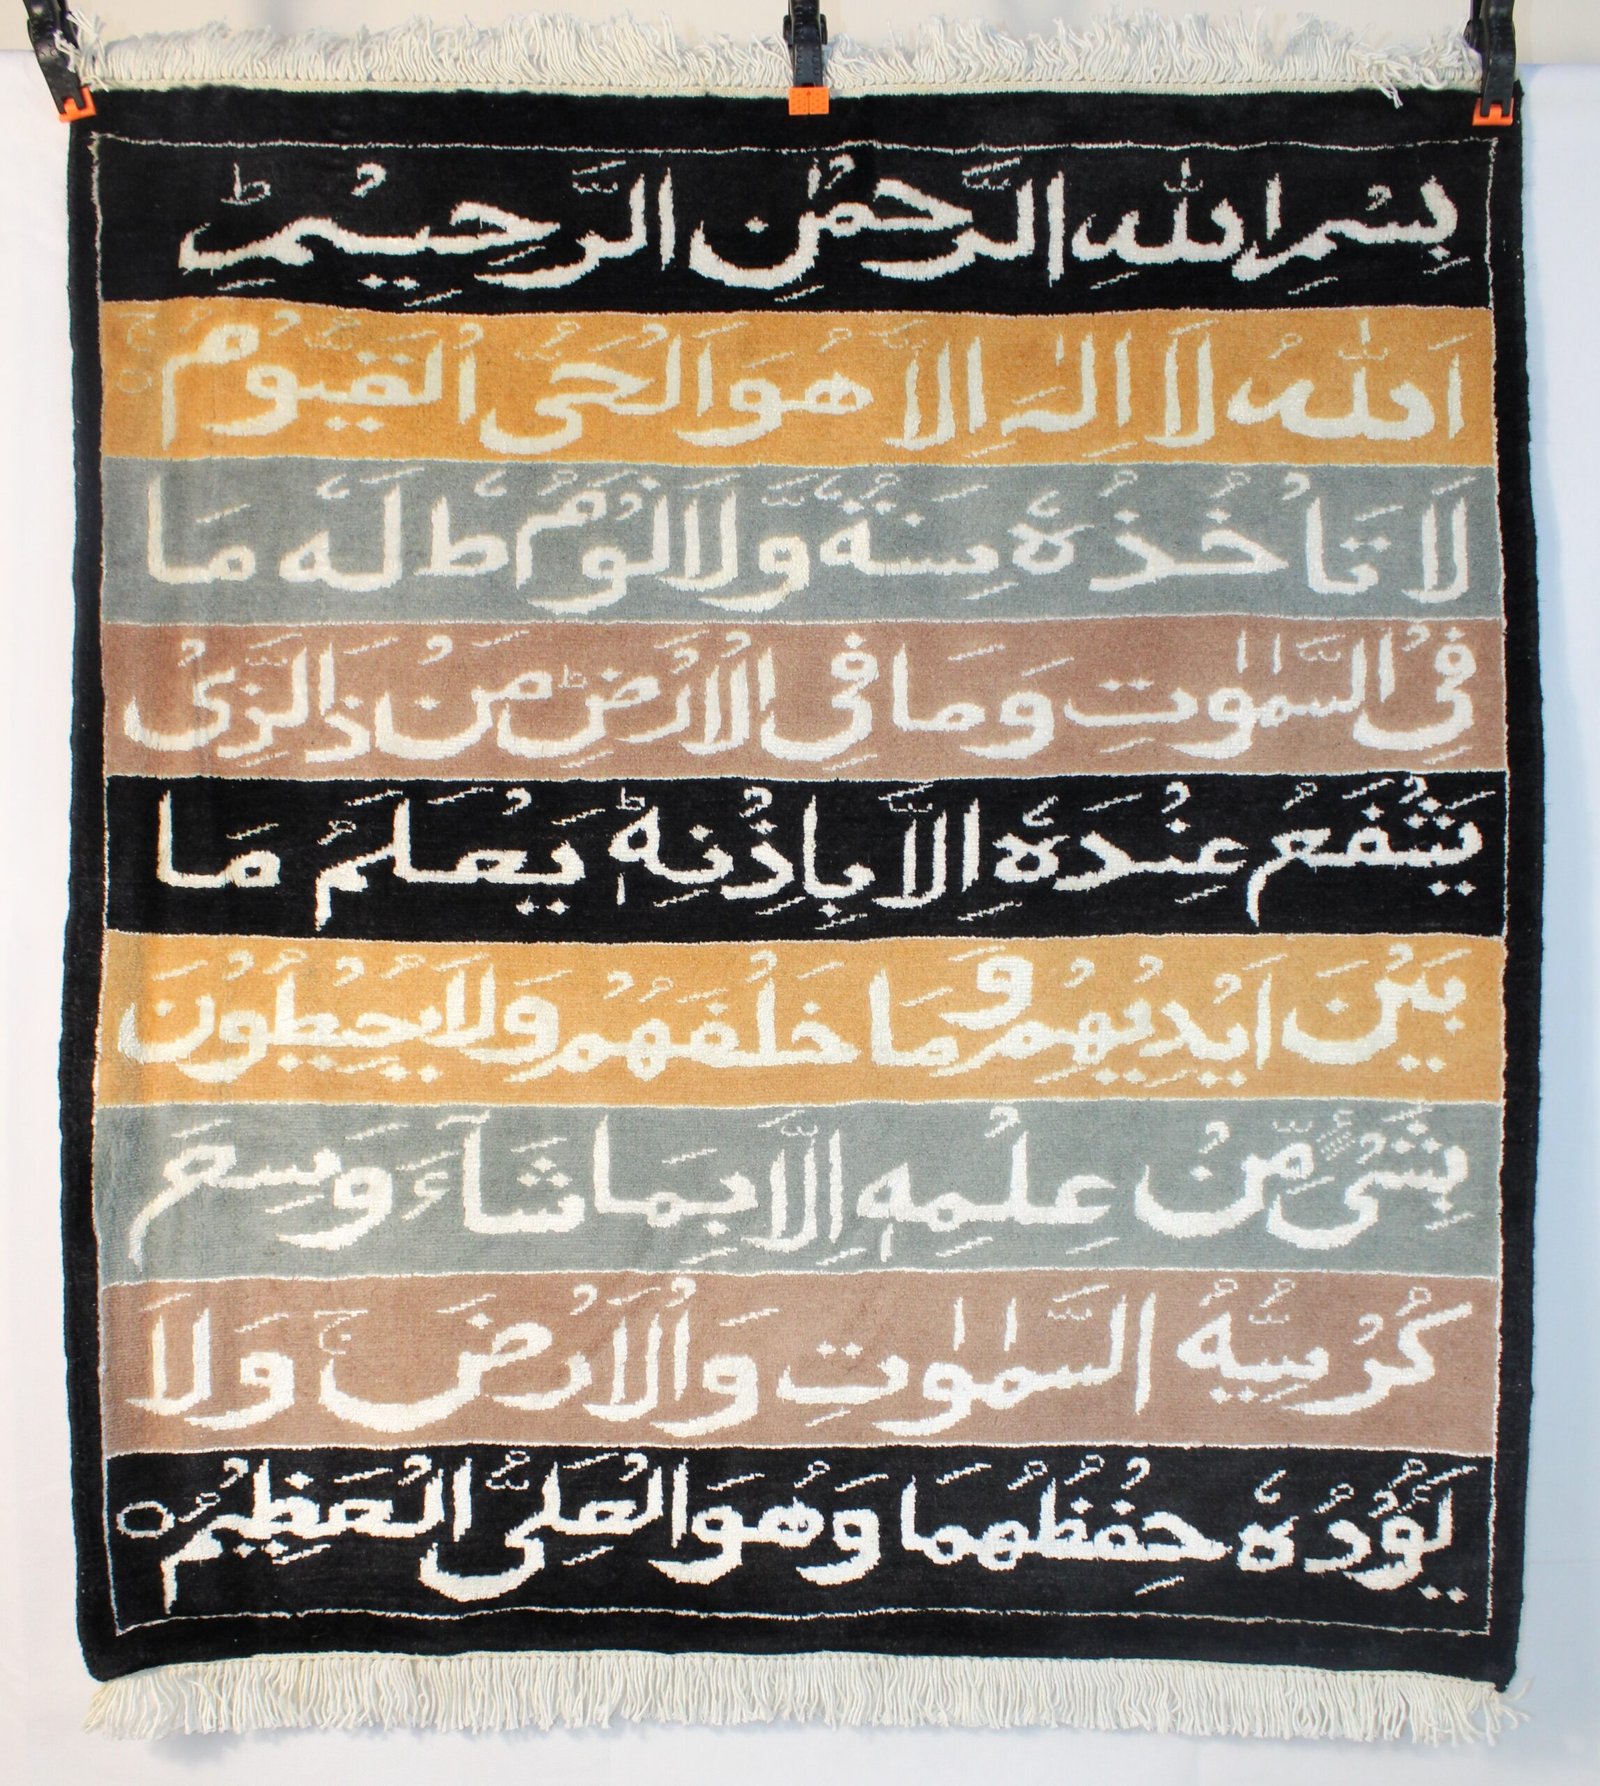 بِسْمِ اللّٰهِ الرَّحْمٰنِ الرَّحِيْمِ ط
اَللّٰهُ لَا اِلٰهَ اِلَّا هُوَ اَلْحَیُّ الْقَيُّوْمُ
لَا تَاْخُذُهٗ سِنَةٌ وَّلَا نَوْمٌ ط لَهٗ مَا
فِی السَّمٰوٰتِ وَمَا فِی الْاَرْضِ ط مَنْ ذَا الَّزِیْ
يَشْفَعُ عِنْدَهٗ اِلَّا بِاِذْنِهٖ ط يَعْلَمُ مَا
بَيْنَ اَيْدِيْهِمْ وَمَا خَلْفَهُمْ وَلَا يُحِيْطُوْنَ
بِشَیْءٍ مِّنْ عِلْمِهٖ اِلَّا بِمَا شَآءَ وَسِعَ
كُرْسِيُّهُ السَّمٰوٰتِ وَالْاَرْضَ ج وَلَا
يَؤُدُهٗ حِفْظُهُمَا وَهُوَ الْعَلِیُّ الْعَظِيْمُ ○